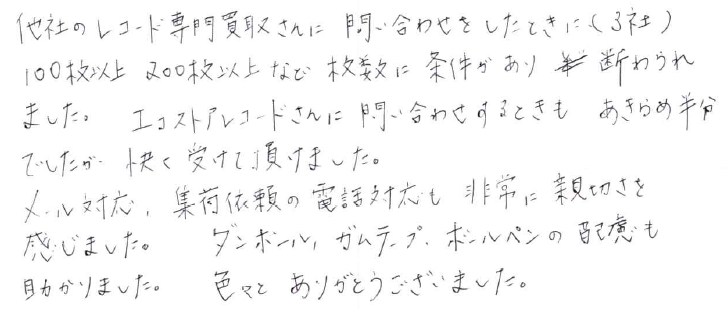 他社のレコード専門買取さんに 問い合わせをしたときに(3社)
100枚以上 200枚以上など 枚数に 条件があり 断わられ
ました。 エコストアレコードさんに 問い合わせするときも あきらめ半分
でしたが 快く受けて頂けました。
メール対応, 集荷依頼の電話対応も 非常に親切さを
感じました。 ダンボール, ガムテープ, ボールペンの配慮も
助かりました。 色々と ありがとうございました。